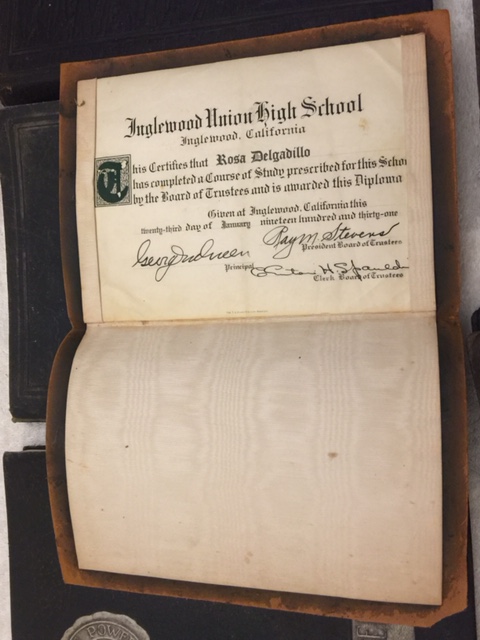 Inglewood Union High School
Inglewood, California
This Certifies that Rosa Delgadillo
has completed a Course of Study prescribed for this Schoo
by the Board of Trustees and is awarded this Diploma
Given at Inglewood, California this
twenty-third day of January nineteen hundred and thirty-one
Ray M. Stevens
President Board of Trustees
Principal
H. Spauldi
Clerk Board of Trustees
POWE